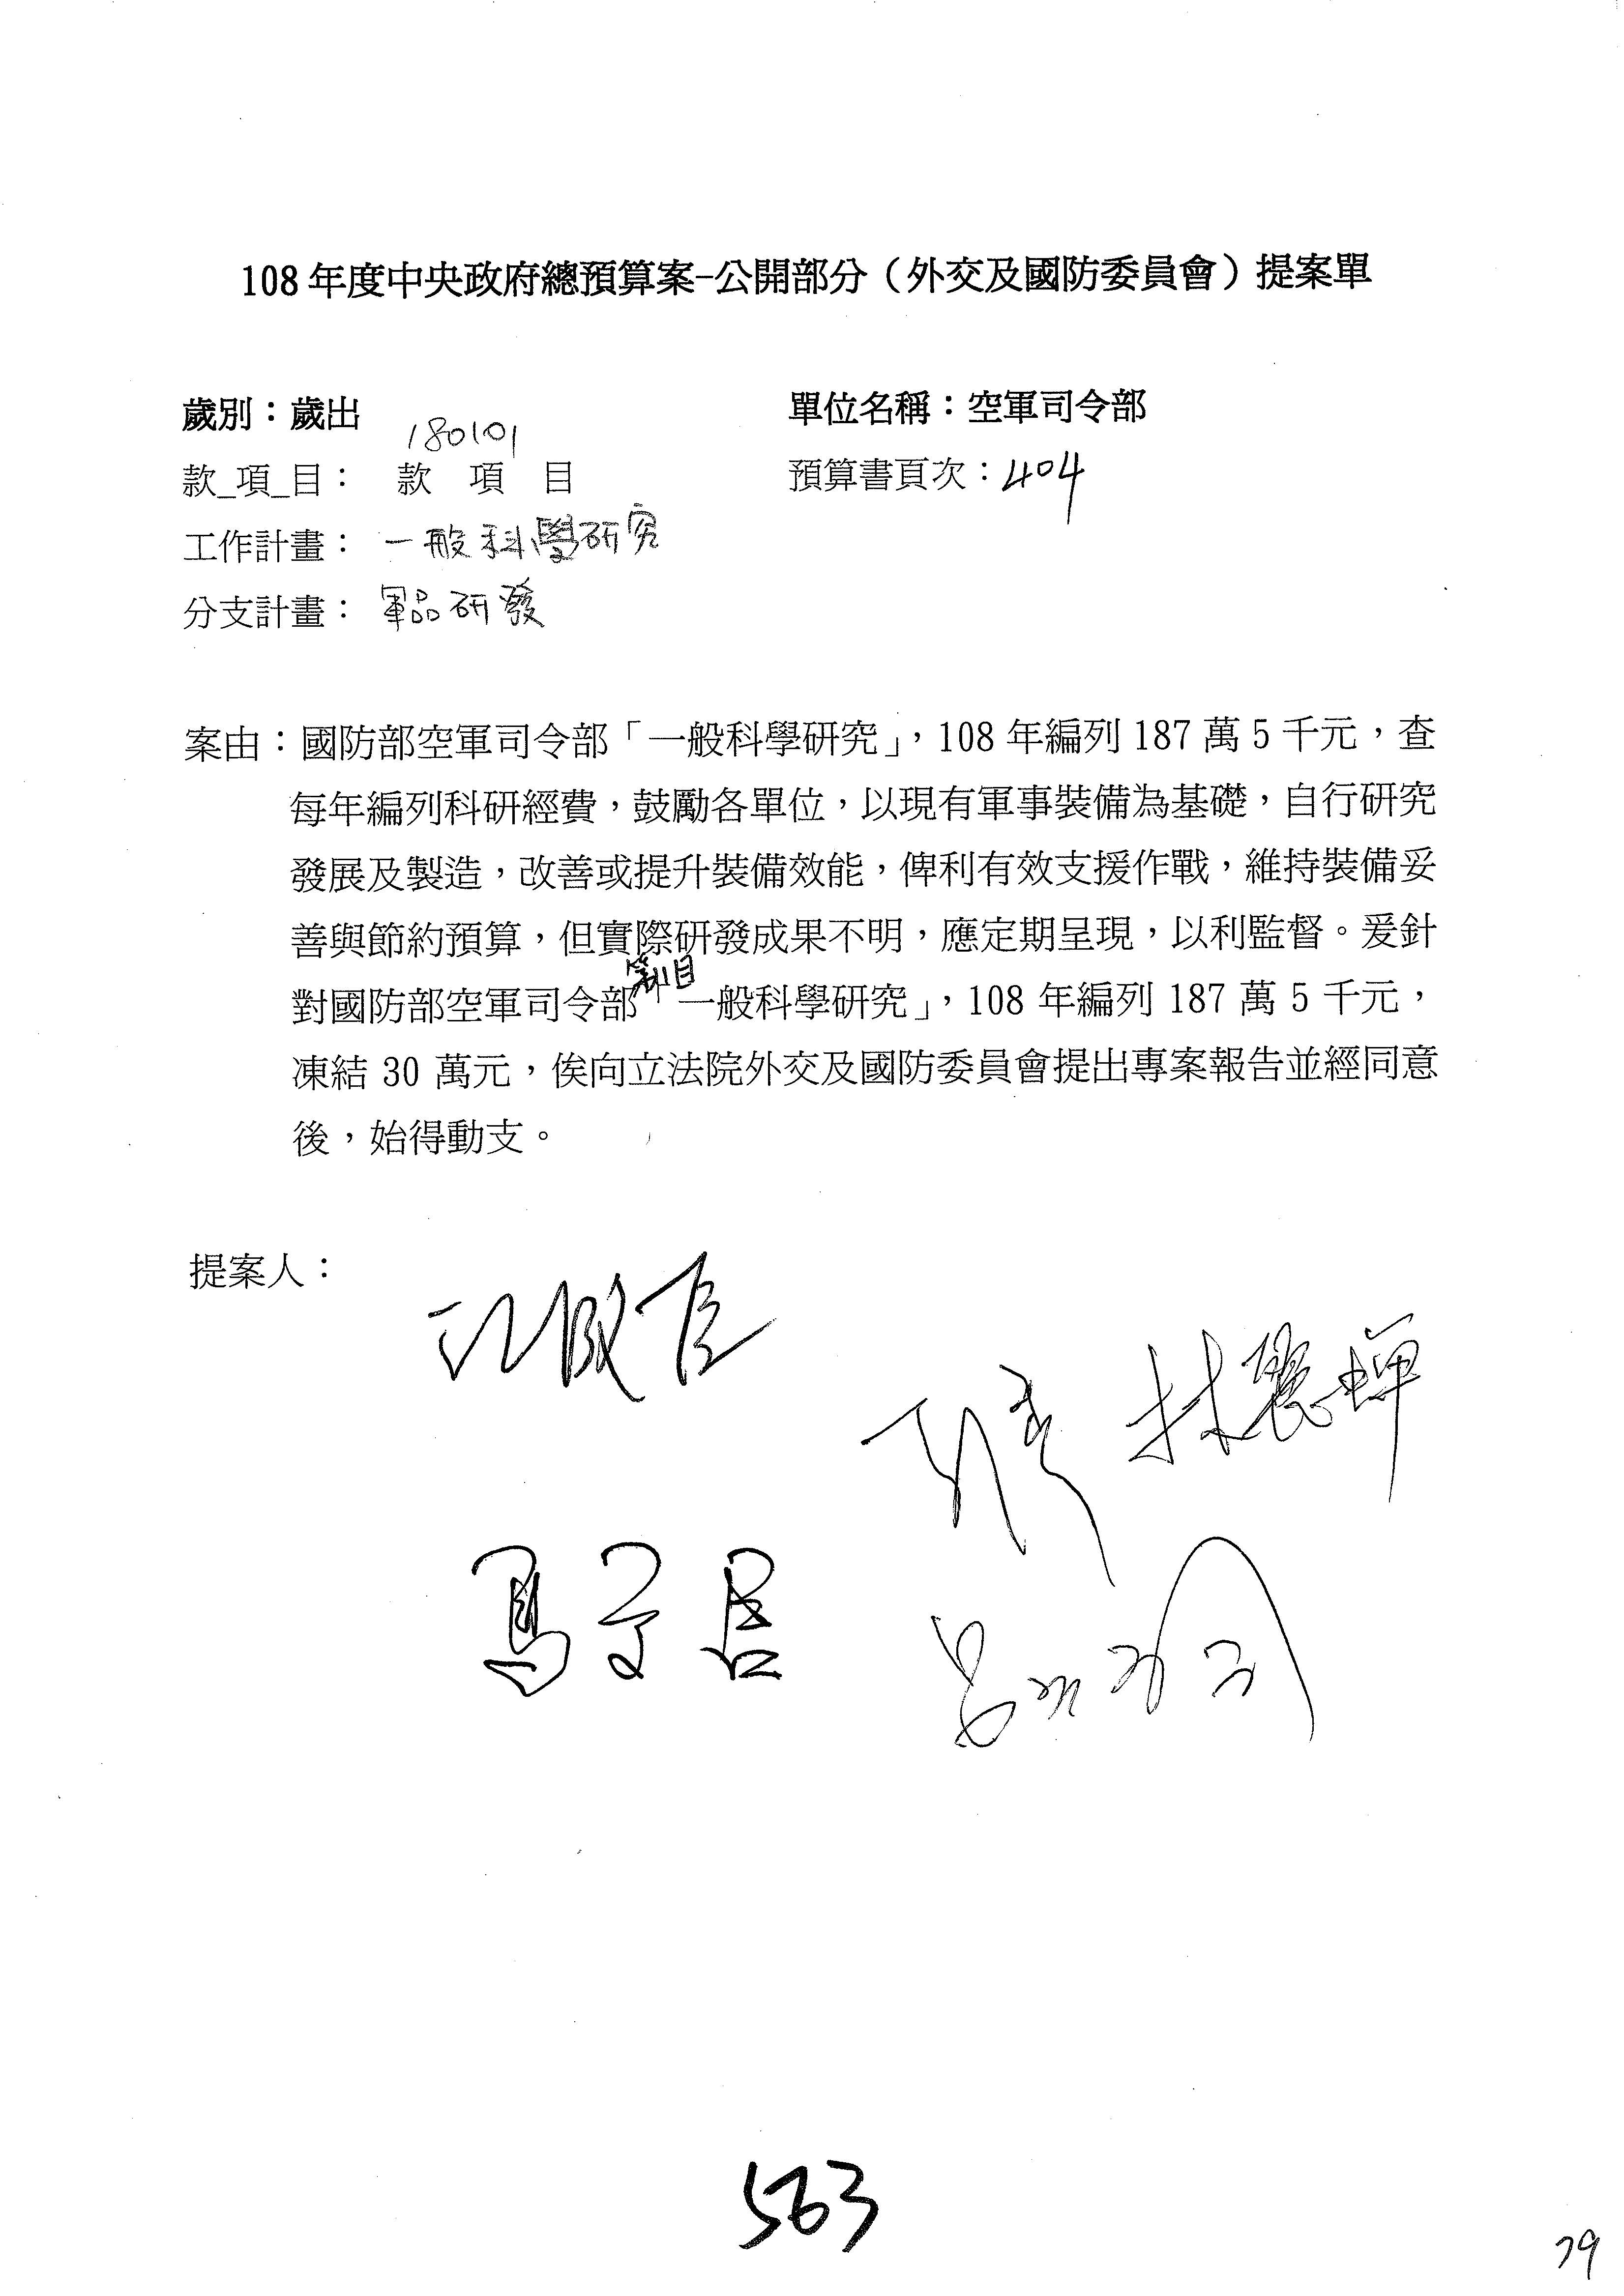 108年度中央政府總預算案-公開部分（外交及國防委員會）提案單
歲別：歲出
單位名稱：空軍司令部
180101
款_項_目： 款 項 目
預算書頁次：404
工作計畫： 一般科學研究
分支計畫： 軍品研發
案由：國防部空軍司令部「一般科學研究」，108年編列187萬5千元，查
每年編列科研經費，鼓勵各單位，以現有軍事裝備為基礎，自行研究
發展及製造，改善或提升裝備效能，俾利有效支援作戰，維持裝備妥
善與節約預算，但實際研發成果不明，應定期呈現，以利監督。爰針
對國防部空軍司令部「一般科學研究」，108年編列187萬5千元，
凍結30萬元，俟向立法院外交及國防委員會提出專案報告並經同意
後，始得動支。
提案人：
江啟臣
林麗蟬
呂玉玲
563
79